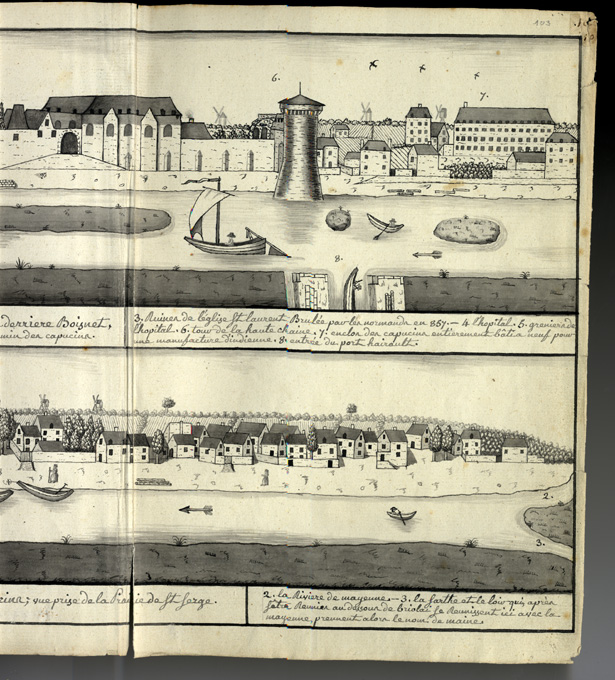 103
6.
7.
8.
derriere Boisnet,
min des capucins.
3. Ruines de l'église St laurent Brulée par les normands en 857. — 4 l'hopital. 5. greniers de
l'hopital. 6. tour de la haute chaine. 7. enclos des capucins entierement bâtis neuf pour
une manufacture d'indienne. 8. entrée du port hairault.
2.
3.
cins; vue prise de la Prairie de St Serge.
2. la Riviere de mayenne. — 3. la Sarthe et le loir qui après
s'être Reunies au dessous de briolai se Reunissent ici avec la
mayenne, prennent alors le nom de maine.